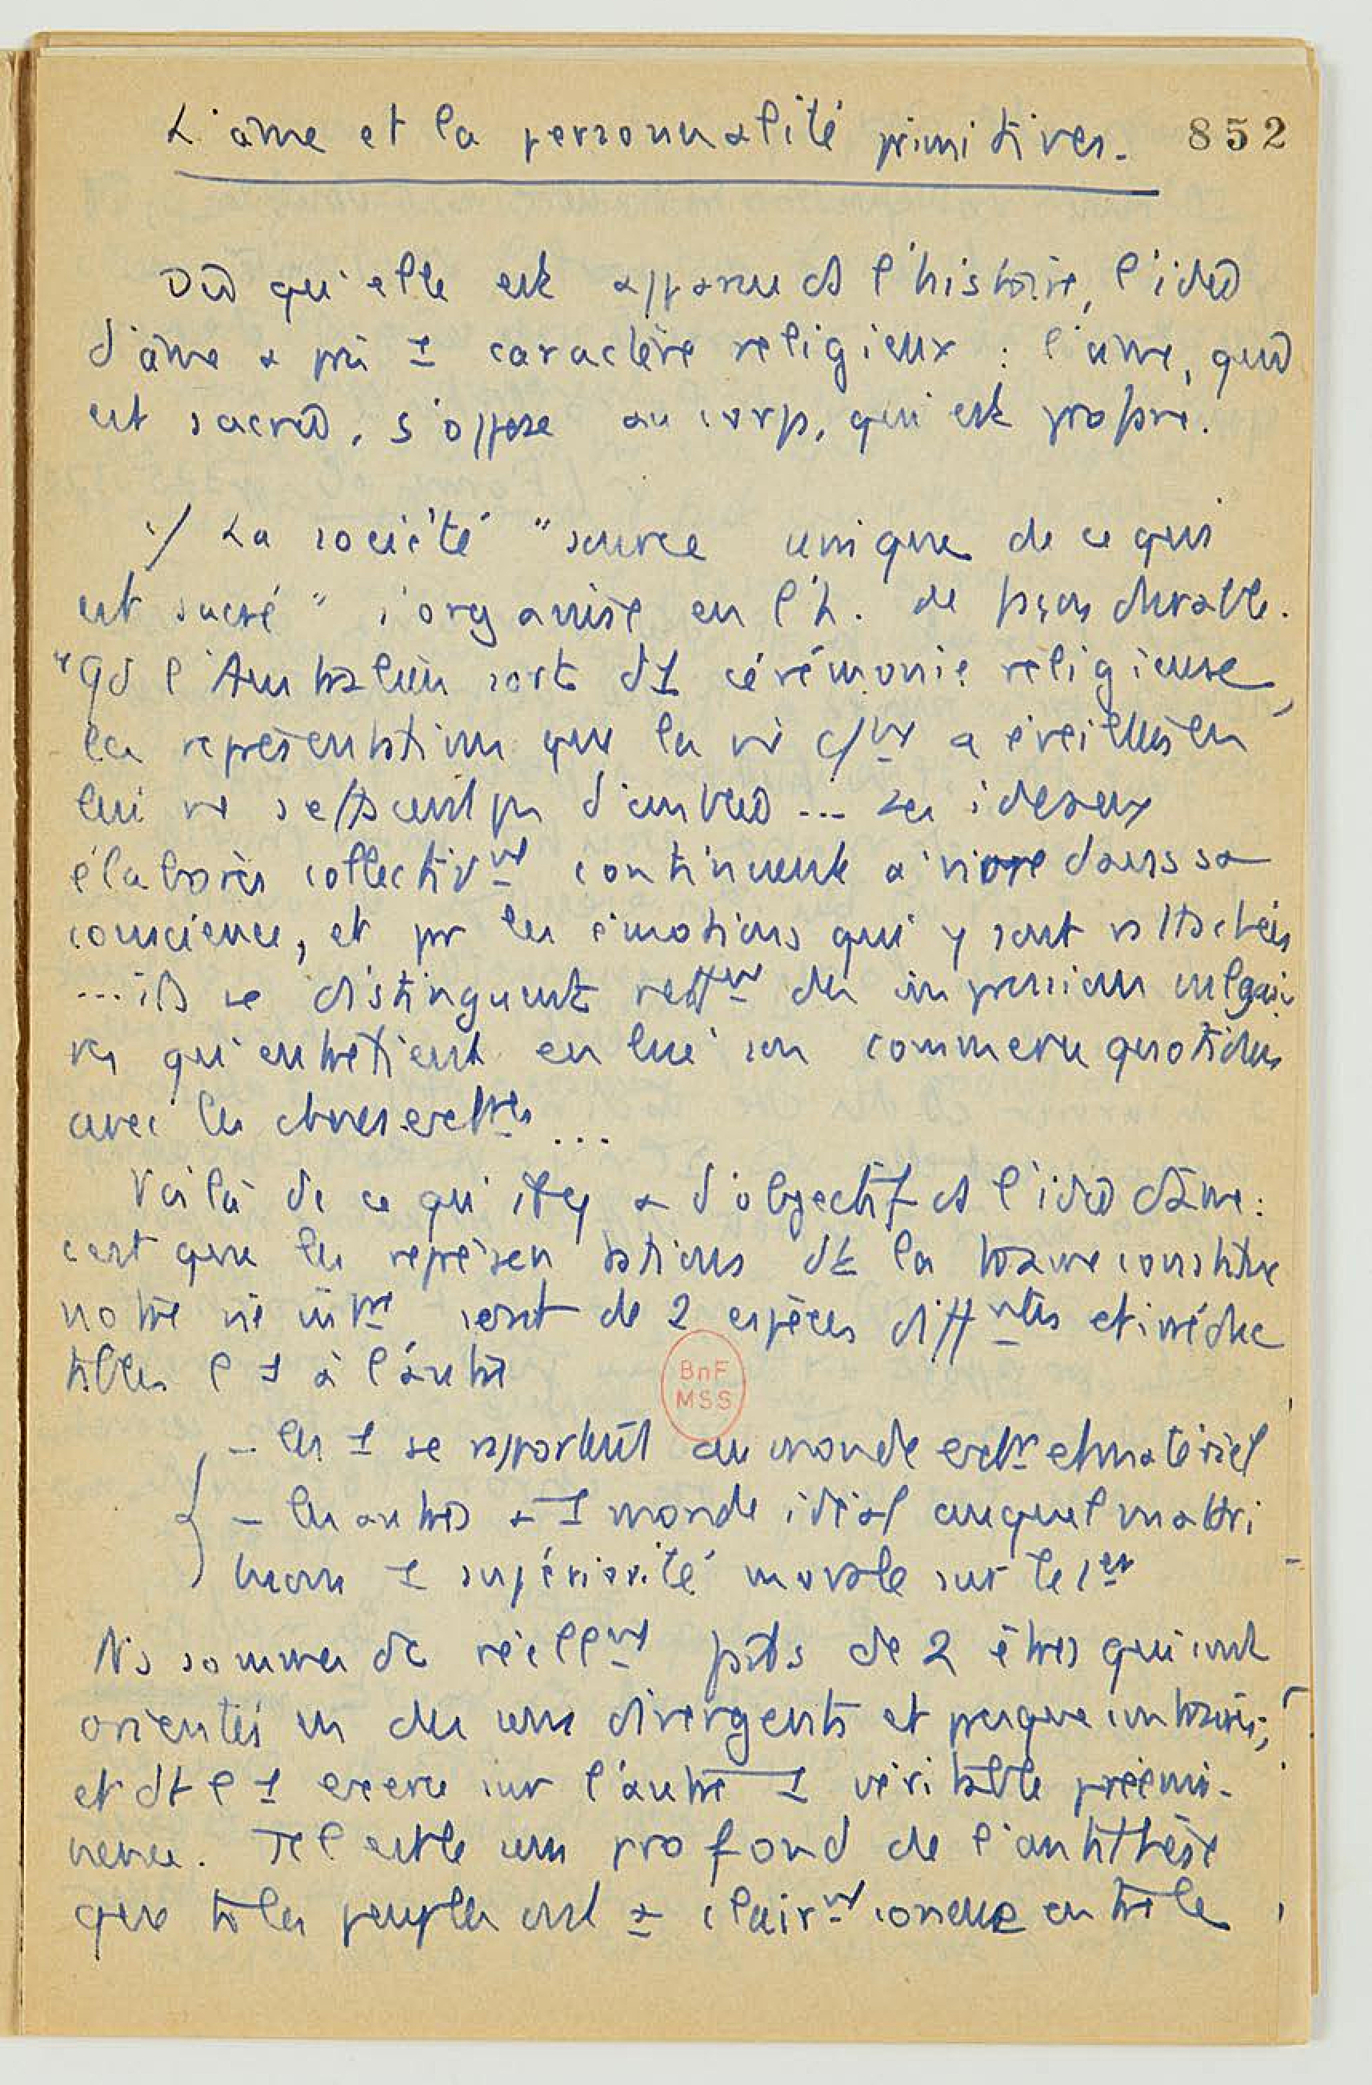 L'âme et la personnalité primitives. 852
Dès qu'elle est apparue ds l'histoire, l'idée
d'âme a pris 1 caractère religieux : l'âme, qui
est sacrée, s'oppose au corps, qui est profane.
:/ La société "source unique de ce qui
est sacré" s'organise en l'h. de façon durable.
"Qd l'Australien sort d'1 cérémonie religieuse,
les représentations que la vie c/ve a éveillées en
lui ne s'effacent pas d'un coup ... Les idéaux
élaborés collectivmt continuent à vivre dans sa
conscience, et par les émotions qui y sont rattachées
... ils se distinguent nettmt des impressions vulgai-
res qu'entretient en lui son commerce quotidien
avec les choses extres ...
Voilà dc ce qu'il y a d'objectif ds l'idée d'âme :
c'est que les représentations dt la trame constitue
notre vie intre sont de 2 espèces diffntes et irréduc
tibles l'1 à l'autre
- les 1 se rapportent au monde extr et matériel
- les autres à 1 monde idéal auquel ns attri
buons 1 supériorité morale sur le 1er
Ns sommes dc réellmt faits de 2 êtres qui sont
orientés en des sens divergents et presque contraires,
et dt l'1 exerce sur l'autre 1 véritable préémi-
nence. Tel est le sens profond de l'antithèse
que ts les peuples ont + clairmt conçue entre le
BnF
MSS